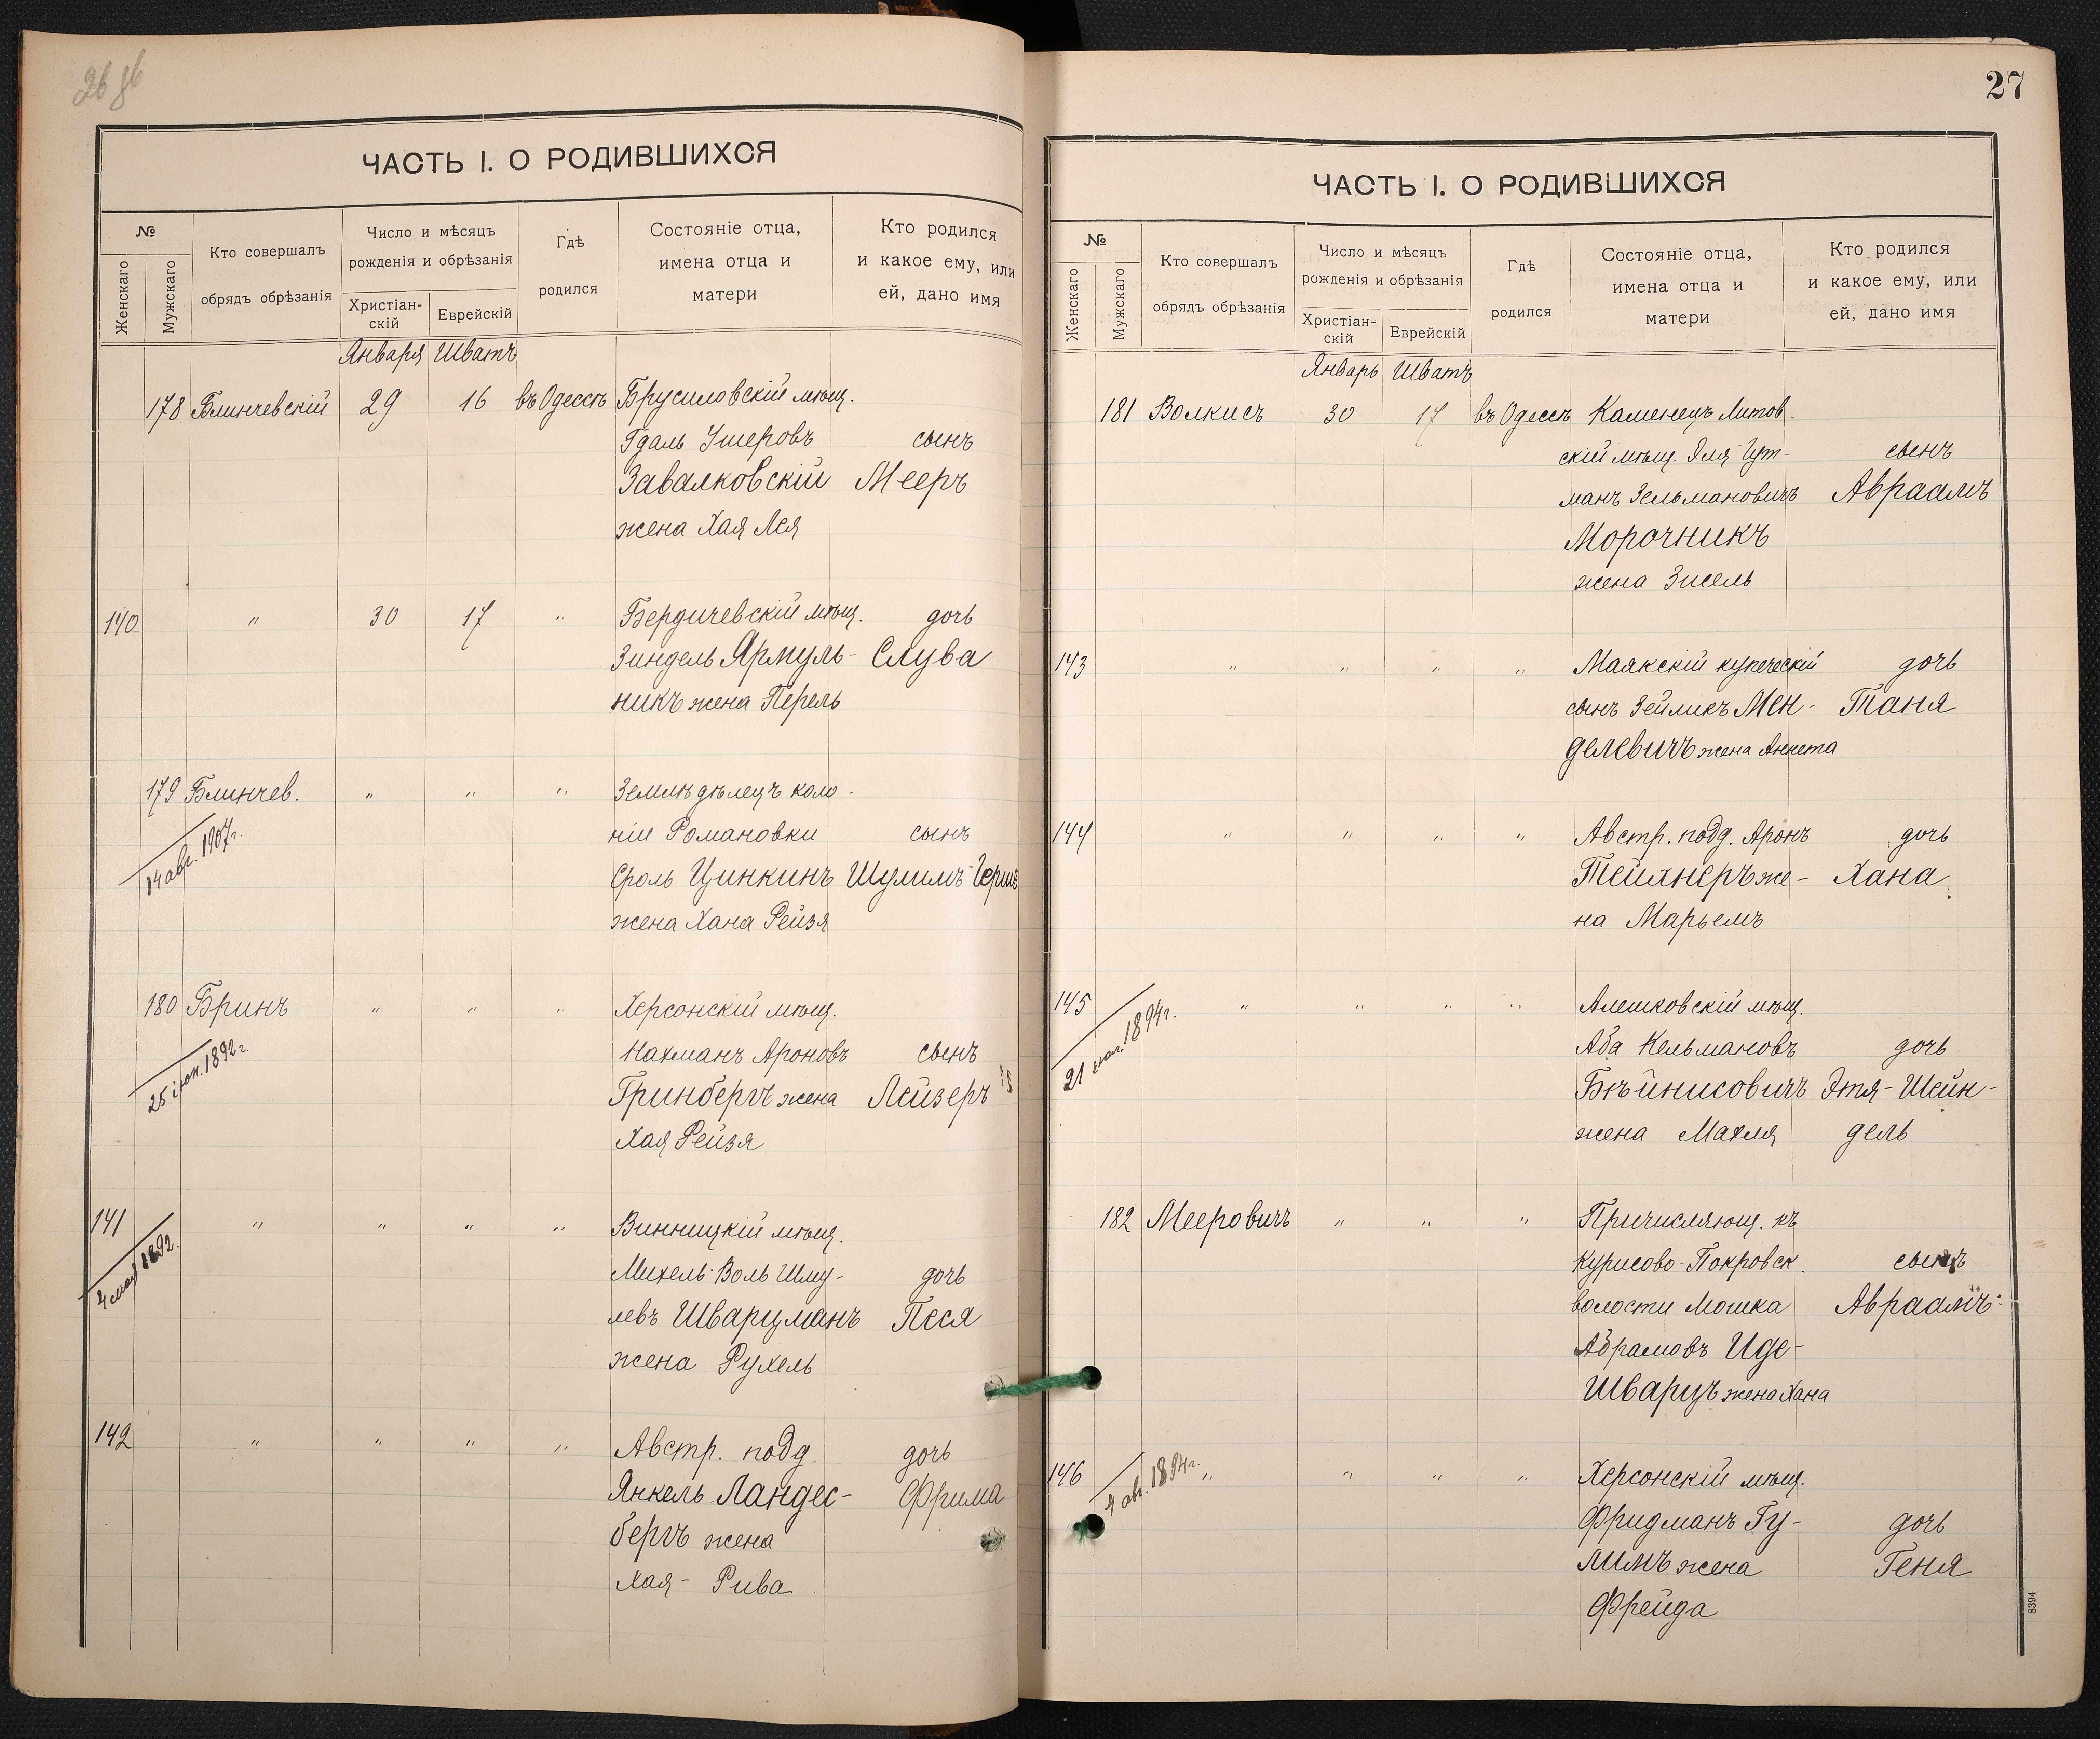 26 об
ЧАСТЬ I. О РОДИВШИХСЯ
№
Женскаго
Мужскаго
Кто совершалъ
обрядъ обрѣзанія
Число и мѣсяцъ
рожденія и обрѣзанія
Христіан-
скій
Еврейскій
Гдѣ
родился
Состояніе отца,
имена отца и
матери
Кто родился
и какое ему, или
ей, дано имя
Января Шватъ
178 Блинчевскій 29 16 въ Одессѣ Брусиловскій мѣщ.
Гдаль Ушеровъ сынъ
Завалковскій Мееръ
жена Хая Лея
140 " 30 17 " Бердичевскій мѣщ. дочь
Зиндель Ярмуль- Слува
никъ жена Перель
179 Блинчев. " " " Земледѣлецъ коло-
14 авг. 1907 г.
ніи Романовки сынъ
Сроль Цинкинъ Шулимъ-Гершъ
жена Хана Рейзя
180 Бринъ " " " Херсонскій мѣщ.
25 іюн. 1892 г.
Нахманъ Ароновъ сынъ
Гринбергъ жена Лейзеръ
Хая Рейзя
141 " " " " Винницкій мѣщ.
4 мая 1892
Михель-Воль Шму- дочь
левъ Шварцманъ Песя
жена Рухель
142 " " " " Австр. подд. дочь
Янкель Ландес- Фрима
бергъ жена
Хая- Рива
27
ЧАСТЬ I. О РОДИВШИХСЯ
№
Женскаго
Мужскаго
Кто совершалъ
обрядъ обрѣзанія
Число и мѣсяцъ
рожденія и обрѣзанія
Христіан-
скій
Еврейскій
Гдѣ
родился
Состояніе отца,
имена отца и
матери
Кто родился
и какое ему, или
ей, дано имя
Январь Шватъ
181 Волкисъ 30 17 въ Одессѣ Каменецъ Литов-
скій мѣщ. Эля Гут- сынъ
манъ Зельмановичъ Авраамъ
Морочникъ
жена Зисель
143 " " " " Маякскій купеческій дочь
сынъ Зейликъ Мен- Таня
делевичъ жена Аннета
144 " " " " Австр. подд. Аронъ дочь
Тейхнеръ же- Хана
на Марьемъ
145 " " " " Алешковскій мѣщ.
1894 г.
Аба Кельмановъ дочь
Бѣйнисовичъ Этя-Шейн-
жена Махля дель
182 Мееровичъ " " " Причисляющ. къ
Курисово-Покровск. сынъ
волости Мошка Авраамъ
Абрамовъ Иде-
Шварцъ жена Хана
146 " " " " Херсонскій мѣщ.
4 авг. 1894 г.
Фридманъ Гу- дочь
лимъ жена Геня
Фрейда
8394